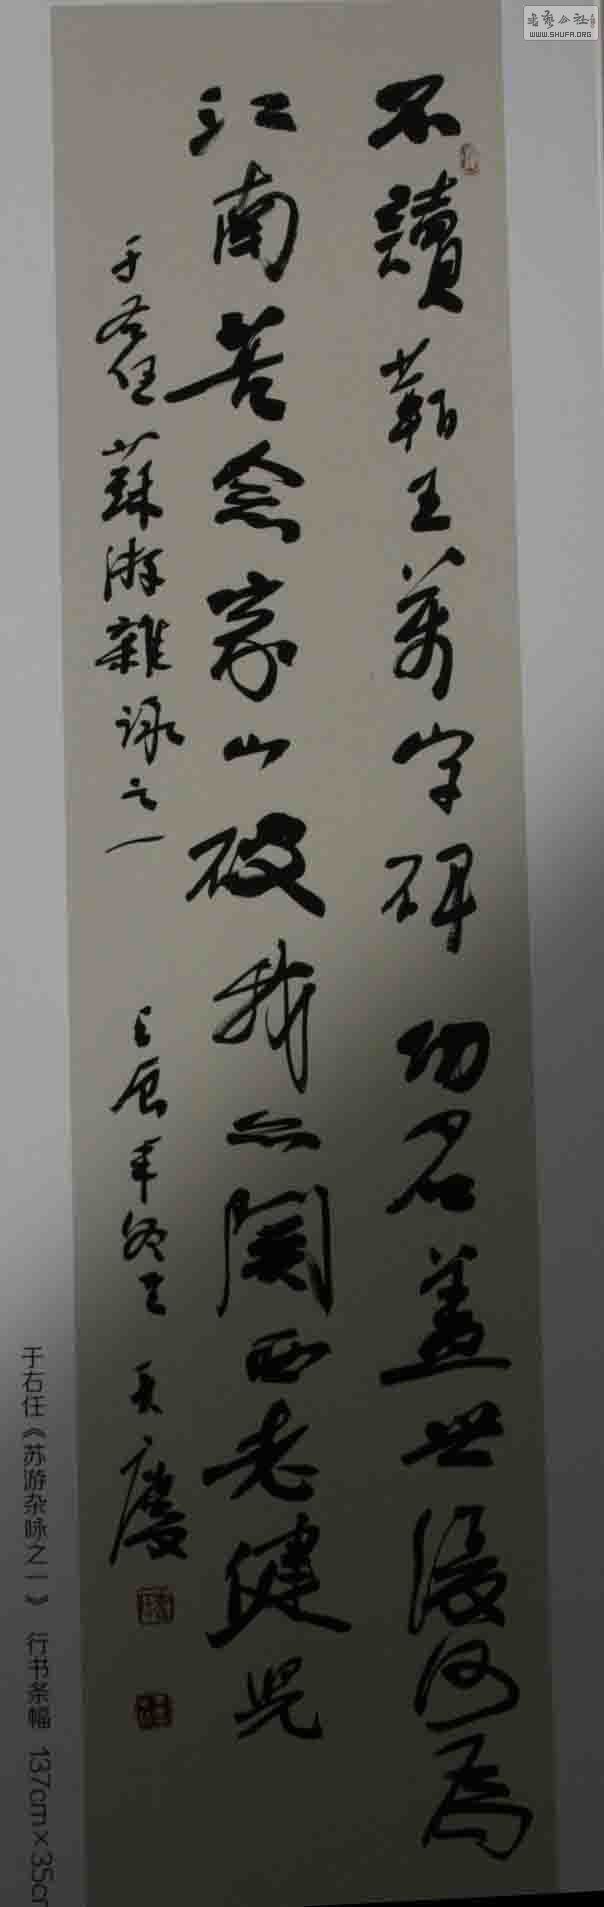 不讀蘄王萬字碑功名盖世復何為
江南苦念家山破我亦関西老健兒
于右任蘇游雜詠之一 辰年 天慶
于右任《苏游杂咏之一》 行书条幅 137cm×35cm
书艺公社
WWW.SHUFA.ORG